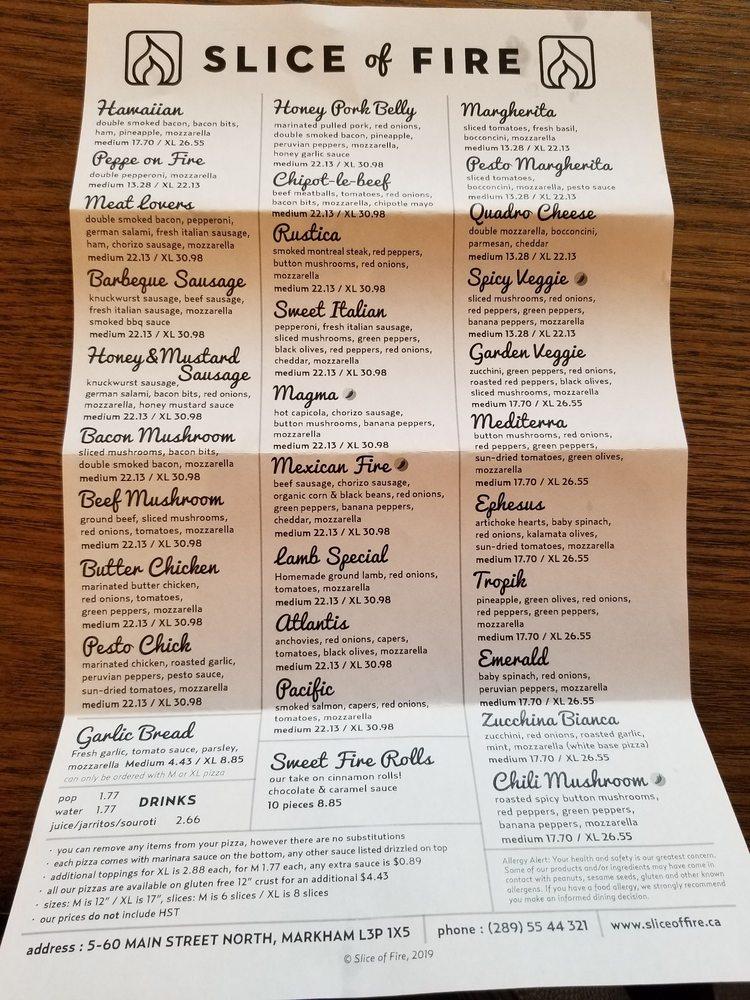 SLICE of FIRE
Hawaiian
double smoked bacon, bacon bits,
ham, pineapple, mozzarella
medium 17.70 / XL 26.55
Peppe on Fire
double pepperoni, mozzarella
medium 13.28 / XL 22.13
Meat Lovers
double smoked bacon, pepperoni,
german salami, fresh italian sausage,
ham, chorizo sausage, mozzarella
medium 22.13 / XL 30.98
Barbeque Sausage
knuckwurst sausage, beef sausage,
fresh italian sausage, mozzarella
smoked bbq sauce
medium 22.13 / XL 30.98
Honey & Mustard
Sausage
knuckwurst sausage,
german salami, bacon bits, red onions,
mozzarella, honey mustard sauce
medium 22.13 / XL 30.98
Bacon Mushroom
sliced mushrooms, bacon bits,
double smoked bacon, mozzarella
medium 22.13 / XL 30.98
Beef Mushroom
ground beef, sliced mushrooms,
red onions, tomatoes, mozzarella
medium 22.13 / XL 30.98
Butter Chicken
marinated butter chicken,
red onions, tomatoes,
green peppers, mozzarella
medium 22.13 / XL 30.98
Pesto Chick
marinated chicken, roasted garlic,
peruvian peppers, pesto sauce,
sun-dried tomatoes, mozzarella
medium 22.13 / XL 30.98
Garlic Bread
Fresh garlic, tomato sauce, parsley,
mozzarella Medium 4.43 / XL 8.85
can only be ordered with M or XL pizza
pop 1.77
water 1.77
DRINKS
juice/jarritos/souroti 2.66
Honey Pork Belly
marinated pulled pork, red onions,
double smoked bacon, pineapple,
peruvian peppers, mozzarella,
honey garlic sauce
medium 22.13 / XL 30.98
Chipot-le-beef
beef meatballs, tomatoes, red onions,
bacon bits, mozzarella, chipotle mayo
medium 22.13 / XL 30.98
Rustica
smoked montreal steak, red peppers,
button mushrooms, red onions,
mozzarella
medium 22.13 / XL 30.98
Sweet Italian
pepperoni, fresh italian sausage,
sliced mushrooms, green peppers,
black olives, red peppers, red onions,
cheddar, mozzarella
medium 22.13 / XL 30.98
Magma
hot capicola, chorizo sausage,
button mushrooms, banana peppers,
mozzarella
medium 22.13 / XL 30.98
Mexican Fire
beef sausage, chorizo sausage,
organic corn & black beans, red onions,
green peppers, banana peppers,
cheddar, mozzarella
medium 22.13 / XL 30.98
Lamb Special
Homemade ground lamb, red onions,
tomatoes, mozzarella
medium 22.13 / XL 30.98
Atlantis
anchovies, red onions, capers,
tomatoes, black olives, mozzarella
medium 22.13 / XL 30.98
Pacific
smoked salmon, capers, red onions,
tomatoes, mozzarella
medium 22.13 / XL 30.98
Sweet Fire Rolls
our take on cinnamon rolls!
chocolate & caramel sauce
10 pieces 8.85
Margherita
sliced tomatoes, fresh basil,
bocconcini, mozzarella
medium 13.28 / XL 22.13
Pesto Margherita
sliced tomatoes,
bocconcini, mozzarella, pesto sauce
medium 13.28 / XL 22.13
Quadro Cheese
double mozzarella, bocconcini,
parmesan, cheddar
medium 13.28 / XL 22.13
Spicy Veggie
sliced mushrooms, red onions,
red peppers, green peppers,
banana peppers, mozzarella
medium 13.28 / XL 22.13
Garden Veggie
zucchini, green peppers, red onions,
roasted red peppers, black olives,
sliced mushrooms, mozzarella
medium 17.70 / XL 26.55
Mediterra
button mushrooms, red onions,
red peppers, green peppers,
sun-dried tomatoes, green olives,
mozzarella
medium 17.70 / XL 26.55
Ephesus
artichoke hearts, baby spinach,
red onions, kalamata olives,
sun-dried tomatoes, mozzarella
medium 17.70 / XL 26.55
Tropik
pineapple, green olives, red onions,
red peppers, green peppers,
mozzarella
medium 17.70 / XL 26.55
Emerald
baby spinach, red onions,
peruvian peppers, mozzarella
medium 17.70 / XL 26.55
Zucchina Bianca
zucchini, red onions, roasted garlic,
mint, mozzarella (white base pizza)
medium 17.70 / XL 26.55
Chili Mushroom
roasted spicy button mushrooms,
red peppers, green peppers,
banana peppers, mozzarella
medium 17.70 / XL 26.55
· you can remove any items from your pizza, however there are no substitutions
· each pizza comes with marinara sauce on the bottom, any other sauce listed drizzled on top
· additional toppings for XL is 2.88 each, for M 1.77 each, any extra sauce is $0.89
· all our pizzas are available on gluten free 12" crust for an additional $4.43
· sizes: M is 12" / XL is 17", slices: M is 6 slices / XL is 8 slices
· our prices do not include HST
Allergy Alert: Your health and safety is our greatest concern.
Some of our products and/or ingredients may have come in
contact with peanuts, sesame seeds, gluten and other known
allergens. If you have a food allergy, we strongly recommend
you make an informed dining decision.
address : 5-60 MAIN STREET NORTH, MARKHAM L3P 1X5
phone : (289) 55 44 321
www.sliceoffire.ca
© Slice of Fire, 2019